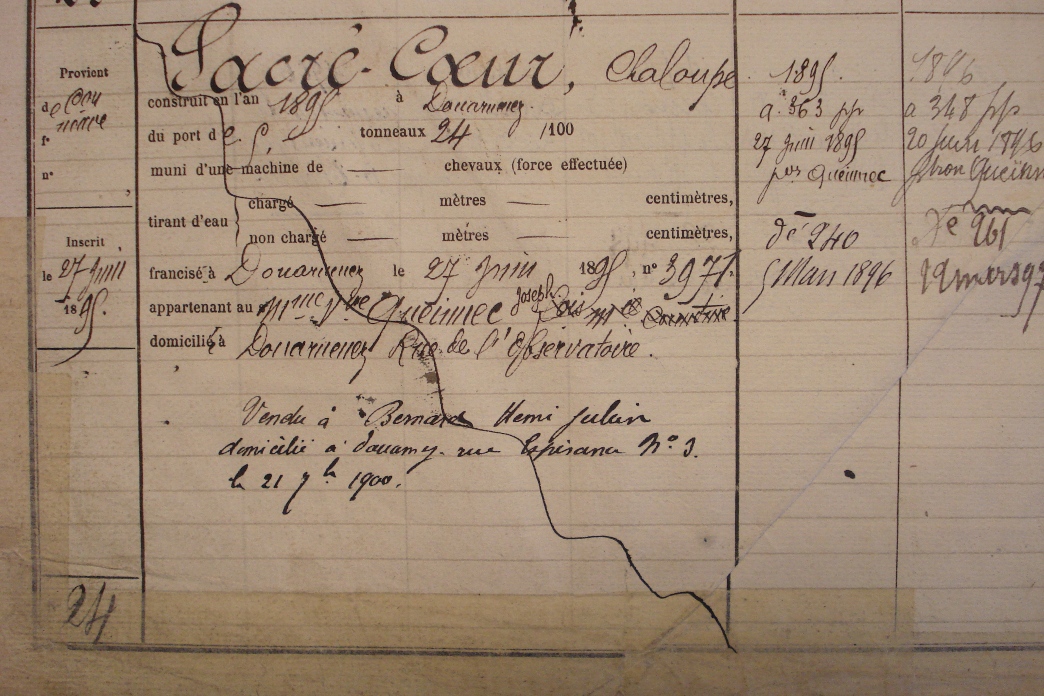 Sacré-Cœur, Chaloupe
Provient
de Con
neuve
f°
n°
construit en l'an 1895 à Douarnenez
du port de 5 tonneaux 24 /100
muni d'une machine de chevaux (force effectuée)
tirant d'eau
chargé mètres centimètres,
non chargé mètres centimètres,
Inscrit
le 27 Juin
1895.
francisé à Douarnenez le 27 Juin 1895, n° 3971.
appartenant au Mme Vve Quéinnec Joseph
domicilié à Douarnenez Rue de l'Observatoire.
Vendu à Bernard Henri Julien
domicilié à Douarnz. rue Espérance N° 3.
le 21 7b 1900.
24
1895.
à 363 pp
27 Juin 1895
pon Quéinnec
dé 240
5 Mars 1896
1896
à 348 pp
20 Juin 1896
Dé 261
19 mars 97